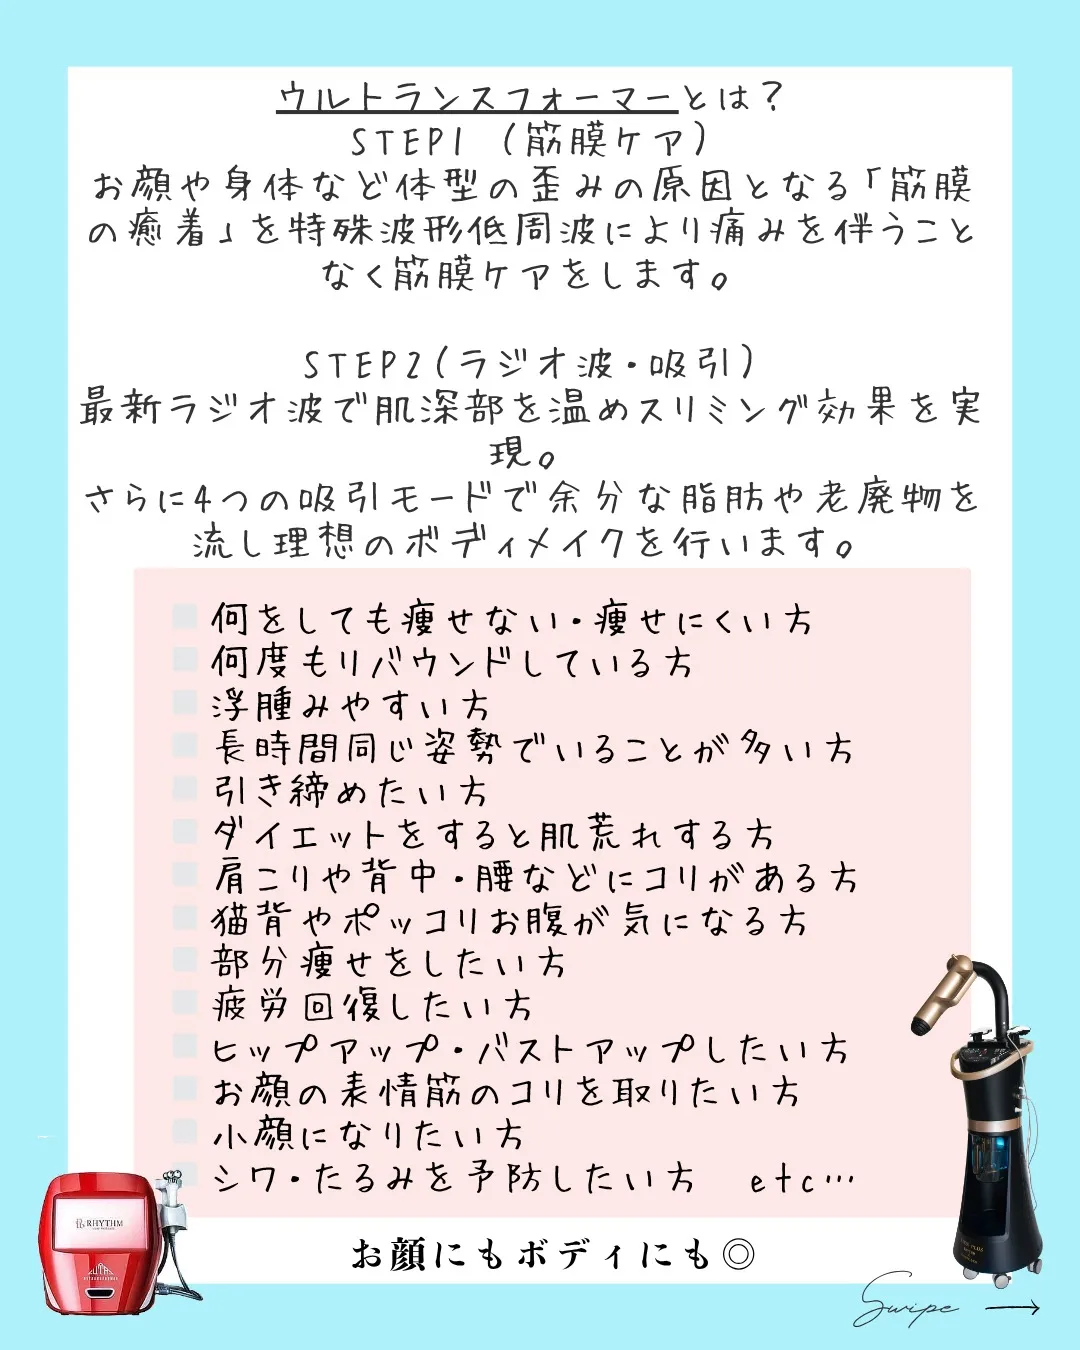 ウルトランスフォーマーとは？
STEP1（筋膜ケア）
お顔や身体など体型の歪みの原因となる「筋膜
の癒着」を特殊波形低周波により痛みを伴うこと
なく筋膜ケアをします。
STEP2(ラジオ波・吸引)
最新ラジオ波で肌深部を温めスリミング効果を実
現。
さらに4つの吸引モードで余分な脂肪や老廃物を
流し理想のボディメイクを行います。
何をしても痩せない・痩せにくい方
何度もリバウンドしている方
浮腫みやすい方
長時間同じ姿勢でいることが多い方
引き締めたい方
ダイエットをすると肌荒れする方
肩こりや背中・腰などにコリがある方
猫背やポッコリお腹が気になる方
部分痩せをしたい方
疲労回復したい方
ヒップアップ・バストアップしたい方
お顔の表情筋のコリを取りたい方
小顔になりたい方
シワ・たるみを予防したい方　etc…
RHYTHM
お顔にもボディにも◎
Swipe